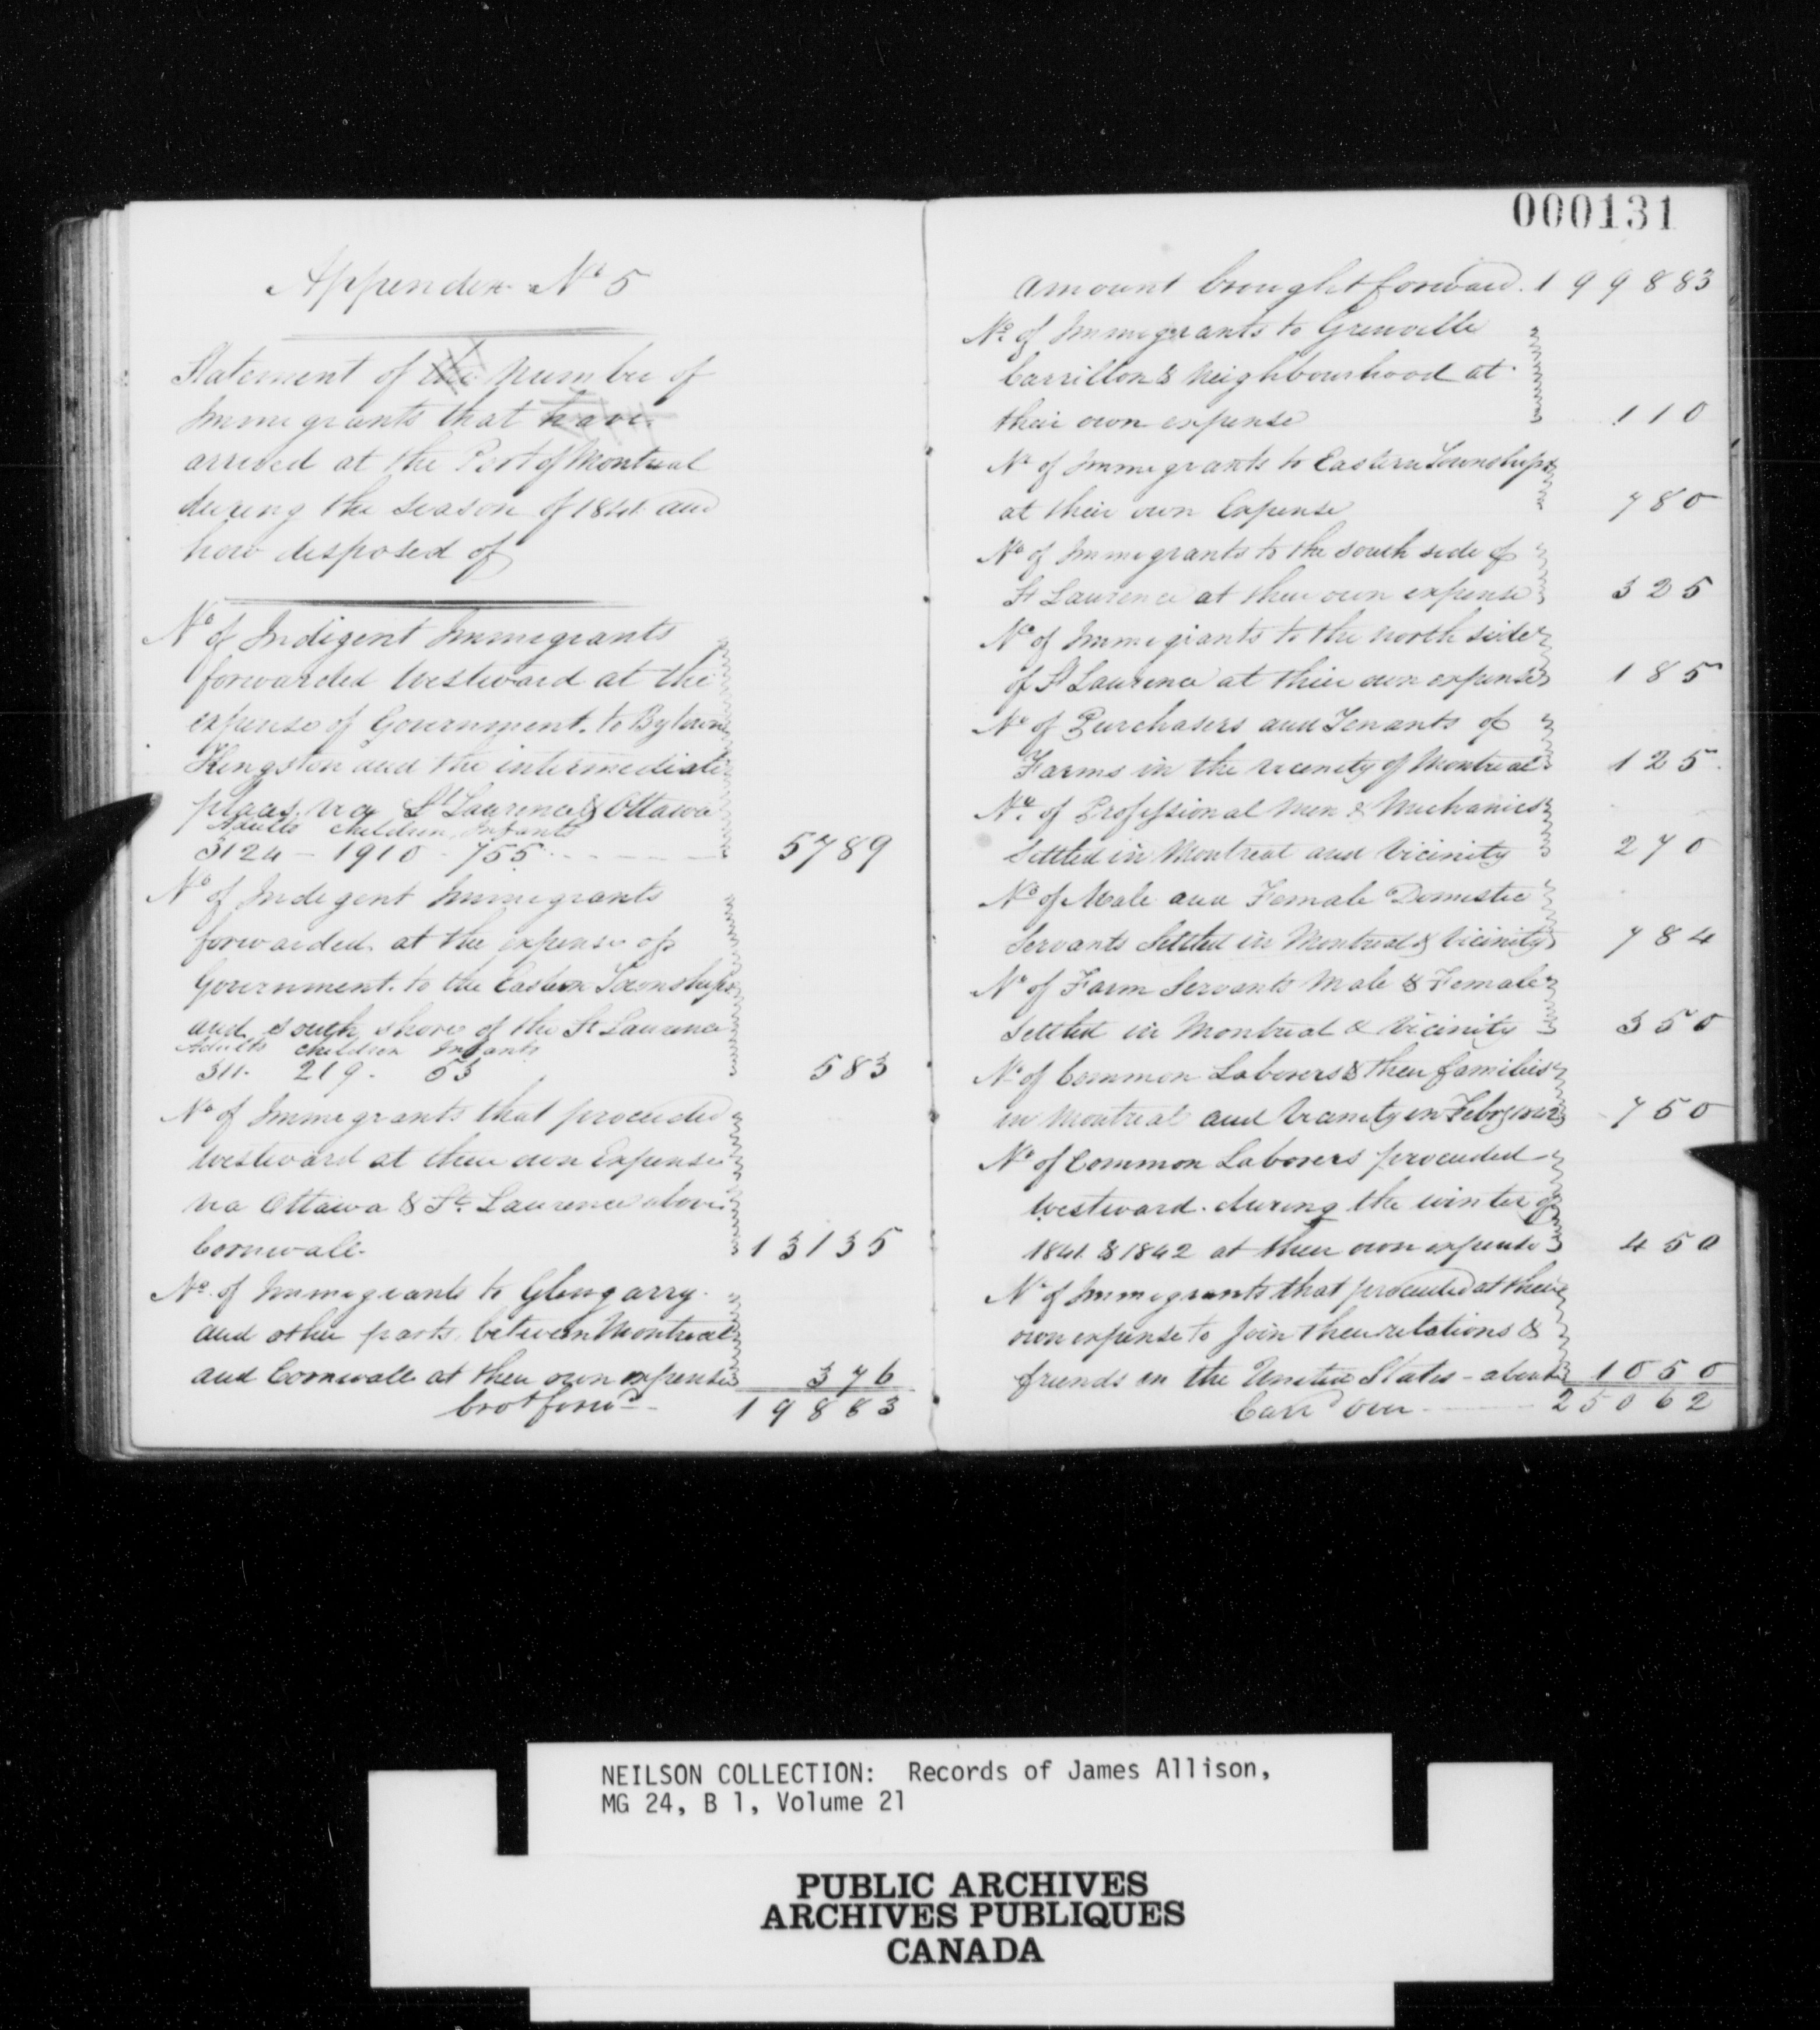 Appendix No 5
Statement of the number of
Immigrants that have
arrived at the Port of Montreal
during the season of 1841 and
how disposed of
No of Indigent Immigrants
forwarded Westward at the
expense of Government. to Bytown
Kingston and the intermediate
places via St Laurence & Ottawa
Adults Children Infants
3124 - 1910 - 755 5789
No of Indigent Immigrants
forwarded at the expense of
Government. to the Eastern Townships
and south shore of the St Laurence
Adults Children Infants
311. 219. 53 583
No of Immigrants that proceeded
Westward at their own Expense
via Ottawa & St. Laurence above
Cornwall. 13135
No. of Immigrants to Glengarry.
and other parts between Montreal
and Cornwall at their own expense 376
brot forwd 19883
000131
amount brought forward. 199883
No. of Immigrants to Grenville
Carrillon & Neighbourhood at
their own expense 110
No of Immigrants to Eastern Townships
at their own Expense 780
No of Immigrants to the south side of
St Laurence at their own expense 325
No of Immigrants to the north side
of St Laurence at their own expense 185
No of Purchasers and Tenants of
Farms in the vicinity of Montreal 125.
No. of Professional Men & Mechanics
Settled in Montreal and Vicinity 270
No of Male and Female Domestic
Servants Settled in Montreal & Vicinity 784
No of Farm Servants Male & Female
settled in Montreal & Vicinity 350
No of Common Laborers & their families
in Montreal and Vicinity in Febry 1842 750
No of Common Laborers proceeded
Westward. during the winter of
1841 & 1842 at their own expense 450
No of Immigrants that proceeded at their
own expense to join their relations &
friends in the United States - about 1050
Carrd over 25062
NEILSON COLLECTION: Records of James Allison,
MG 24, B 1, Volume 21
PUBLIC ARCHIVES
ARCHIVES PUBLIQUES
CANADA